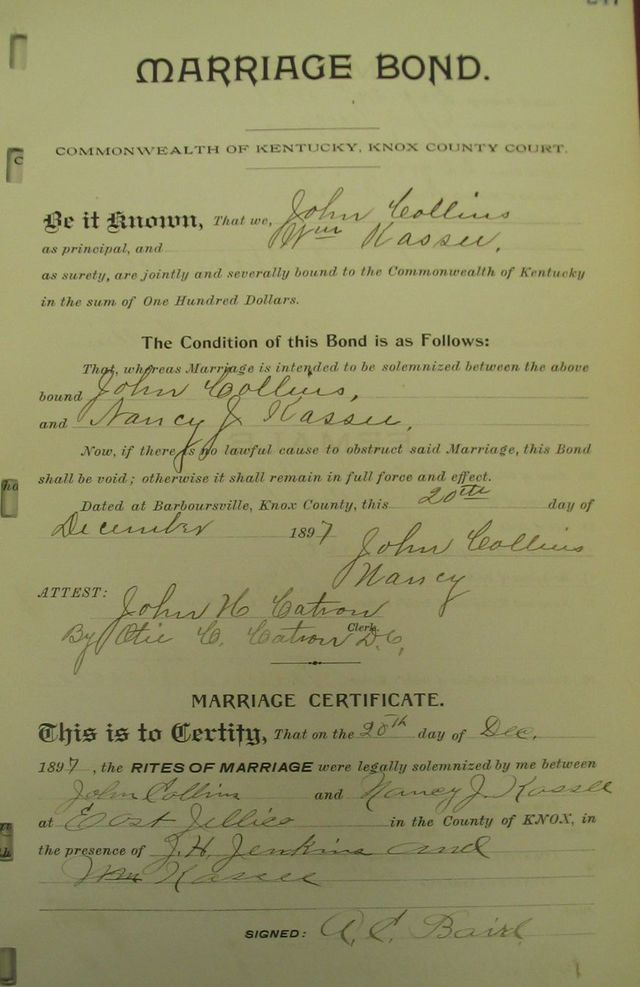 MARRIAGE BOND.
COMMONWEALTH OF KENTUCKY, KNOX COUNTY COURT.
Be it Known, That we, John Collins
as principal, and Wm Kassee,
as surety, are jointly and severally bound to the Commonwealth of Kentucky
in the sum of One Hundred Dollars.
The Condition of this Bond is as Follows:
That, whereas Marriage is intended to be solemnized between the above
bound John Collins,
and Nancy J Kassee,
Now, if there is no lawful cause to obstruct said Marriage, this Bond
shall be void; otherwise it shall remain in full force and effect.
Dated at Barboursville, Knox County, this 20th day of
December 1897
John Collins
Nancy
ATTEST:
John H Catron
Clerk
By Otie C. Catron D.C,
MARRIAGE CERTIFICATE.
This is to Certify, That on the 20th day of Dec.
1897, the RITES OF MARRIAGE were legally solemnized by me between
John Collins and Nancy J. Kassee
at East Jellico in the County of KNOX, in
the presence of J. H. Jenkins and
Wm Kassee
SIGNED: A. C. Baird